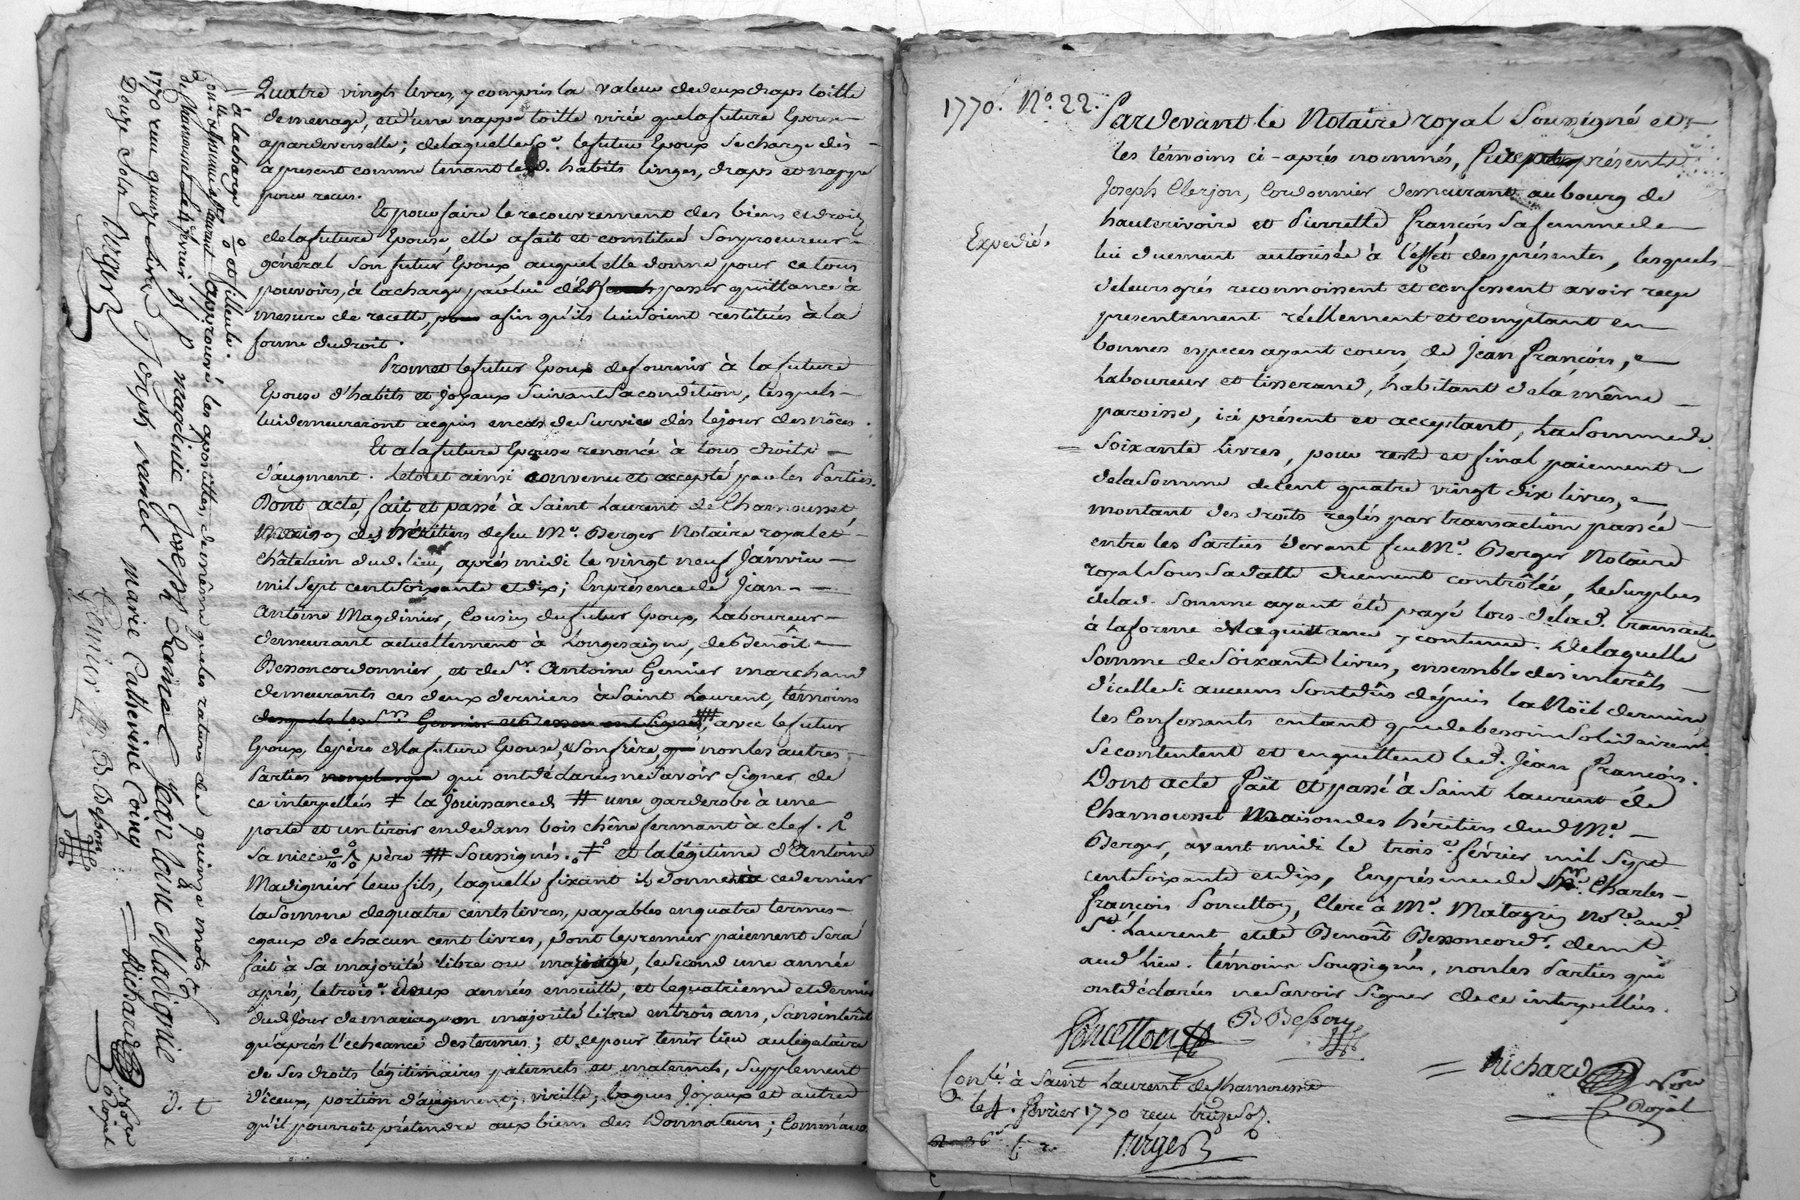 Quatre vingts livres, y compris la valeur de deux draps toille
de menage, et d'une nappe toille virée que la future Epouse
a pardevers elle; de laquelle Se. le futur Epoux se charge dès
à présent comme tenant lesd. habits linges, draps et nappe
pour reçus.
Et pour faire le recouvrement des biens et droits
de la future Epouse, elle a fait et constitué son procureur
général son futur Epoux auquel elle donne pour ce tous
pouvoirs, à la charge par lui de passer quittance à
mesure de recette, afin qu'ils lui soient restitués à la
forme du droit.
Promet le futur Epoux de fournir à la future
Epouse d'habits et joyaux suivant sa condition, lesquels
lui demeureront acquis en cas de survie dès le jour des nôces.
Et a la future Epouse renoncé à tous droits
d'augment. Le tout ainsi convenu et accepté par les Parties.
Dont acte, fait et passé à Saint Laurent de Chamousset
Maison des héritiers de feu Me. Berger Notaire royal et
châtelain dud. lieu, après midi le vingt neuf Janvier
mil sept cent soixante et dix; En présence de Jean
Antoine Magdinier, Cousin du futur Epoux, Laboureur
demeurant actuellement à Longesaigne, de Benoît
Besson cordonnier, et de Sr. Antoine Gemier marchand
demeurants ces deux derniers à Saint Laurent, témoins
desquels les Srs. Gemier et Besson ont signé, avec le futur
Epoux, le père de la future Epouse, & son frère, non les autres
Parties qui ont déclarés ne savoir signer de
ce interpellés ‡ la jouissance d # une garderobe à une
porte et un tiroir en dedans bois chêne fermant à clef.
sa niece père # soussignés. et la légitime d'Antoine
Madignier leur fils, laquelle fixant ils donnent à ce dernier
la somme de quatre cents livres, payables en quatre termes
egaux de chacun cent livres, dont le premier paiement sera
fait à sa majorité libre ou mariage, le second une année
après, le troise. deux années ensuitte, et le quatrieme et dernier
dud. jour de mariage ou majorité libre en trois ans, sans intérêt
qu'après l'écheance des termes; et ce pour tenir lieu au légataire
de ses droits légitimaires paternels et maternels, supplement
d'iceux, portion d'augment, virille, bagues joyaux et autres
qu'il pourroit prétendre aux biens des Donnateurs; Comme aussi
à la charge et filleule.
approuvé les apostilles, de même que les ratures de quinze mots
Magdinié Joseph rainel Jean Louis Madignié
Joseph rainel Marie Catherine Coing
Richard Nore Royal
Gemier B Besson
1770 reçu quinze livres
Douze Sols Berger
d. t
1770. No. 22.
Expedié.
Pardevant le Notaire royal soussigné et
les témoins ci-après nommés, furent présents
Joseph Clerjon, Cordonnier demeurant au bourg de
hauterivoire et Pierrette françois sa femme de
lui duement autorisée à l'effet des présentes, lesquels
de leurs grés reconnoissent et confessent avoir reçu
presentement réellement et comptant en
bonnes especes ayant cours, de Jean françois,
Laboureur et tisserand, habitant de la même
paroisse, ici présent et acceptant, La somme de
Soixante Livres, pour reste et final paiement
de la somme de cent quatre vingt dix livres,
montant des droits reglés par transaction passée
entre les Parties devant feu Me. Berger Notaire
royal sous sa datte duement contrôlée, le surplus
de lad. somme ayant été payé lors de lad. transaction
à la forme de la quittance y contenue. De laquelle
somme de soixante livres, ensemble des interêts
d'icelle si aucuns sont dûs depuis la Noël derniere,
les Confessants entant que de besoin solidairement
se contentent et en quittent led. Jean françois.
Dont acte Fait et passé à Saint Laurent de
Chamousset Maison des héritiers dud. Me.
Berger, avant midi le trois. février mil sept
cent soixante et dix, En présence de Sr. Charles
François Poncetton, Clerc à Me. Matagrin nore. aud.
St. Laurent et de Benoît Besson cordr. demt.
aud. lieu. témoins soussignés, non les Parties qui
ont déclarés ne savoir signer de ce interpellés.
Poncetton B Besson
Richard Nore Royal
Conté. à Saint Laurent de Chamousset
le 4. Février 1770 reçu treize sols.
Berger